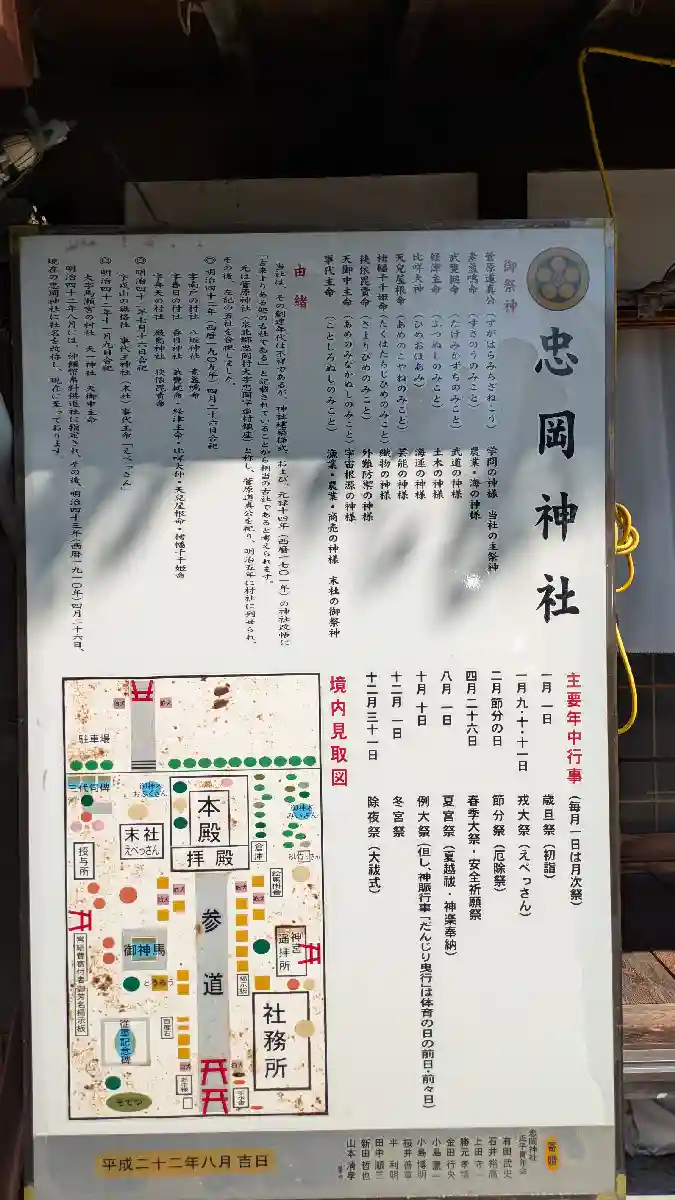 忠岡神社
御祭神
菅原道真公（すがはらみちざねこう） 学問の神様 当社の主祭神
素盞鳴命（すさのうのみこと） 農業・海の神様
武甕槌命（たけみかずちのみこと） 武道の神様
経津主命（ふつぬしのみこと） 土木の神様
比咩大神（ひめおほあみ） 海運の神様
天児屋根命（あめのこやねのみこと） 芸能の神様
栲幡千千姫命（たくはたちじひめのみこと） 織物の神様
狭依毘売命（さよりひめのみこと） 外難防禦の神様
天御中主命（あめのみなかぬしのみこと） 宇宙根源の神様
事代主命（ことしろぬしのみこと） 漁業・農業・商売の神様 末社の御祭神
由緒
当社は、その創建年代は不祥であるが、神社建築様式、および、元禄十四年（西暦一七〇一年）の神社改帳に
「古来よりある処の古社である」と記載されていることから相当の古社であると考えられます。
元は菅原神社（泉北郷忠岡村大字忠岡字宮村鎮座）と称し、菅原道真公を祀り、明治五年に村社に列せられ、
その後、左記の五社を合祀しました。
◎明治四十二年（西暦一九〇九年）四月二十六日合祀
字南戸の村社 八坂神社 素盞鳴命
字春日の村社 春日神社 武甕槌命・経津主命・比咩大神・天児屋根命・栲幡千千姫命
字弁天の村社 厳島神社 狭依毘売命
◎明治四十二年七月十六日合祀
字戎山の無格社 事代主神社（末社）事代主命「えべっさん」
◎明治四十二年十一月九日合祀
大字馬瀬宮の村社 天一神社 天御中主命
明治四十二年八月には、神饌幣帛料供進社に指定され、その後、明治四十三年（西暦一九一〇年）四月二十六日、
現在の忠岡神社に社名を改称し、現在に至っております。
主要年中行事（毎月一日は月次祭）
一月 一日 歳旦祭（初詣）
一月九・十・十一日 戎大祭（えべっさん）
二月節分の日 節分祭（厄除祭）
四月二十六日 春季大祭・安全祈願祭
八月 一日 夏宮祭（夏越祓・神楽奉納）
十月 十日 例大祭（但し、神賑行事「だんじり曳行」は体育の日の前日・前々日）
十二月 一日 冬宮祭
十二月三十一日 除夜祭（大祓式）
境内見取図
駐車場
三代句碑
御神木
おふくさん
本殿
拝殿
末社
えべっさん
授与所
倉庫
御神木
参道
絵馬掛書
御神馬
とうろう
神宮
遥拝所
掲示板
実績曽寄付者御芳名掲示板
従軍記念碑
百度石
社務所
手水舎
そてつ
寄贈
忠岡神社
氏子青年会
有田 武史
石井 裕高
上田 守一
勝元 孝博
金田 行央
小島 憲一
小島 博明
桜井 善章
平 利明
田中 順三
新田 哲也
山本 清孝
平成二十二年八月吉日